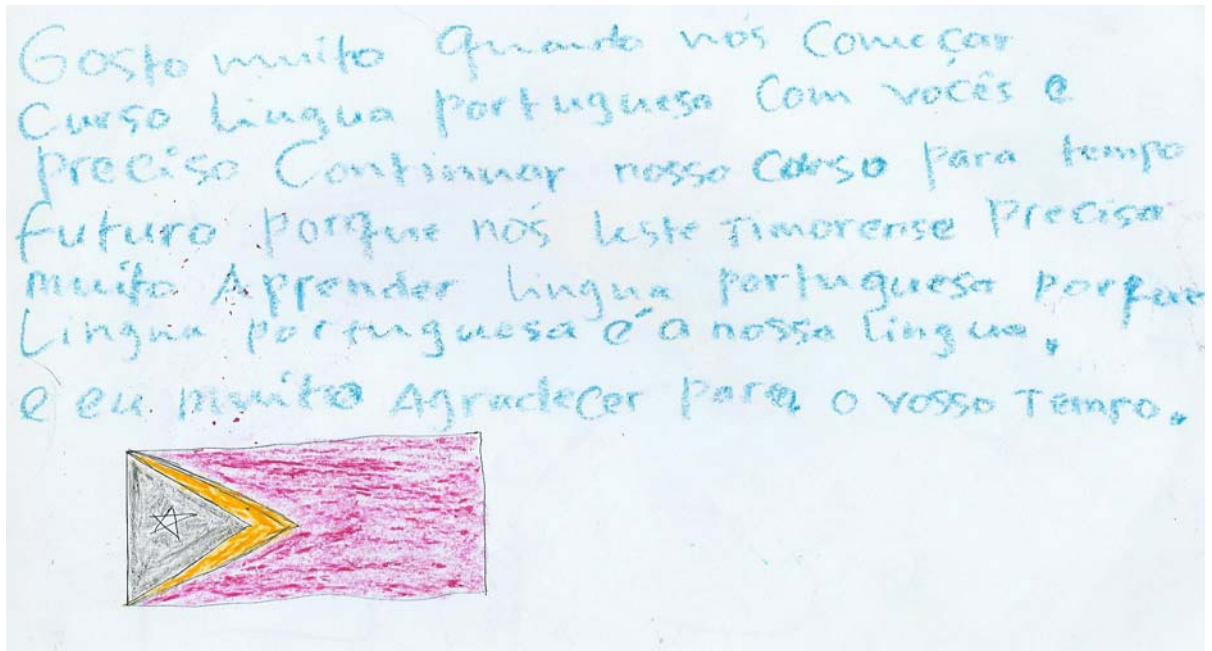 Gosto muito quando nós Começar
Curso Lingua portuguesa Com vocês e
preciso Continuar nosso Curso para tempo
futuro porque nós leste Timorense precisa
muito Aprender lingua portuguesa porque
Lingua portuguesa é a nossa lingua.
e eu muito Agradecer para o vosso Tempo.